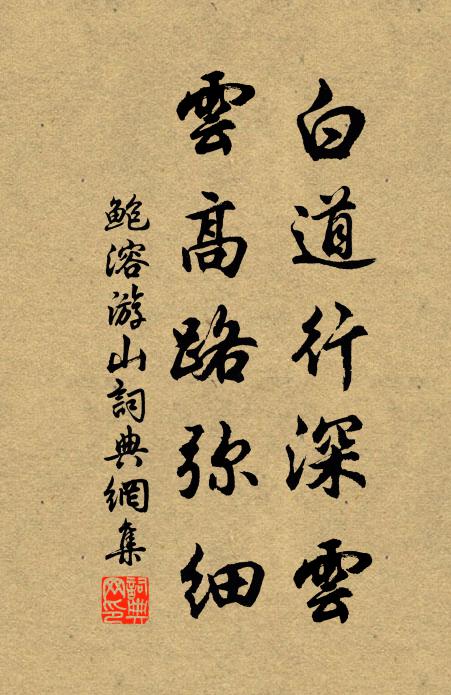 白道行深雲
雲高路弥細
鲍溶游山詞典網集
詞典
网印